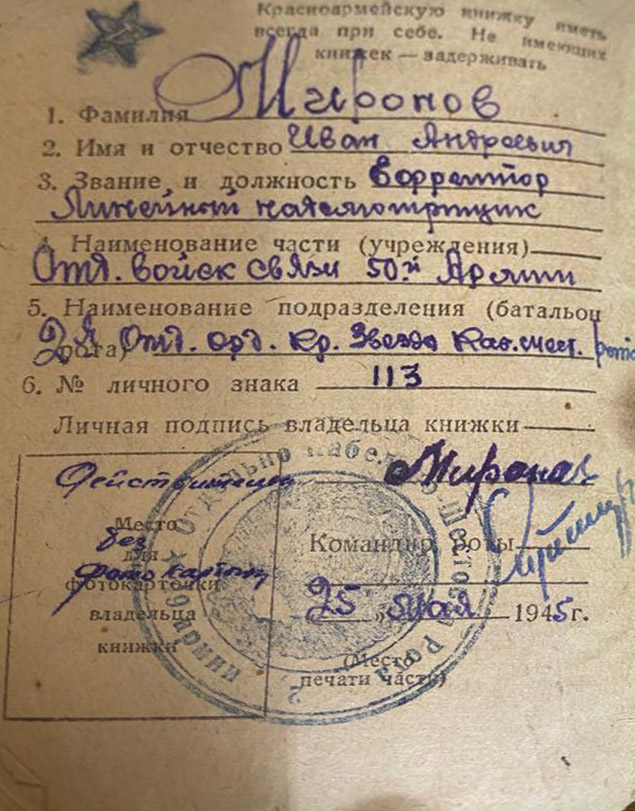 Красноармейскую книжку иметь
всегда при себе. Не имеющих
книжек — задерживать
1. Фамилия Миронов
2. Имя и отчество Иван Андреевич
3. Звание и должность Ефрейтор
Линейный надсмотрщик
4. Наименование части (учреждения)
Отд. войск связи 50й Армии
5. Наименование подразделения (батальон
рота) 2я Отд. орд. Кр. Звезда Каб. шест. рота
6. № личного знака 113
Личная подпись владельца книжки
Действительно Миронов
Место
без
для
фото карточки
фотокарточки
владельца
книжки
Командир роты
25 „ мая 1945г.
(Место
печати части)
Отдельно Кабельно Шестовая Рота